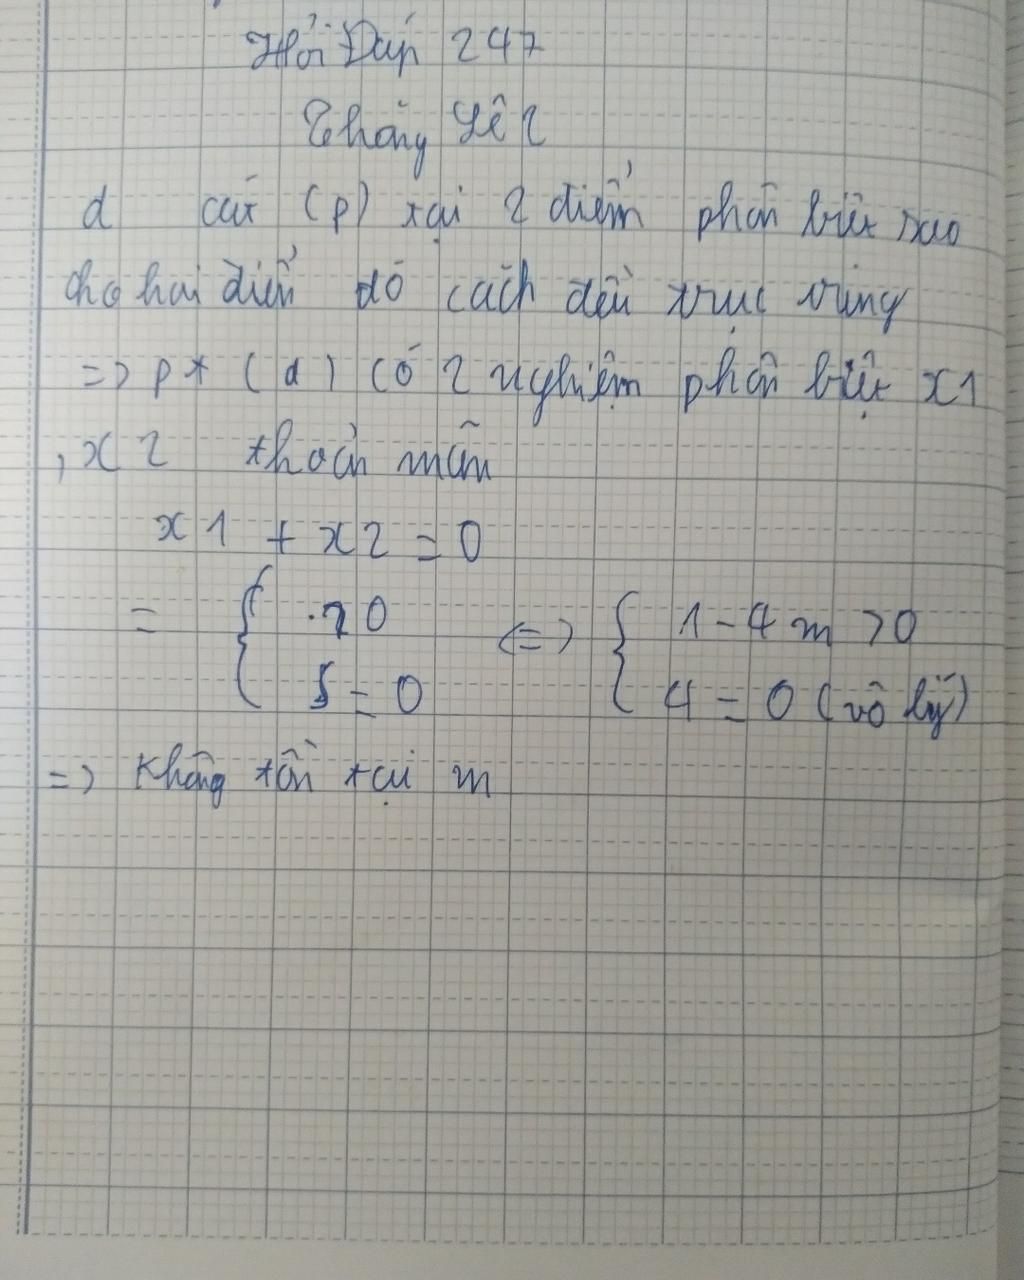 Hỏi Đáp 247
Thắng Yên
d cắt (p) tại 2 điểm phân biệt sao
cho hai điểm đó cách đều trục tung
=> pt (d) có 2 nghiệm phân biệt x1
, x2 thoản mãn
x1 + x2 = 0
= { >0 <=> { 1-4m >0
S = 0 4 = 0 (vô lý)
=> không tồn tại m